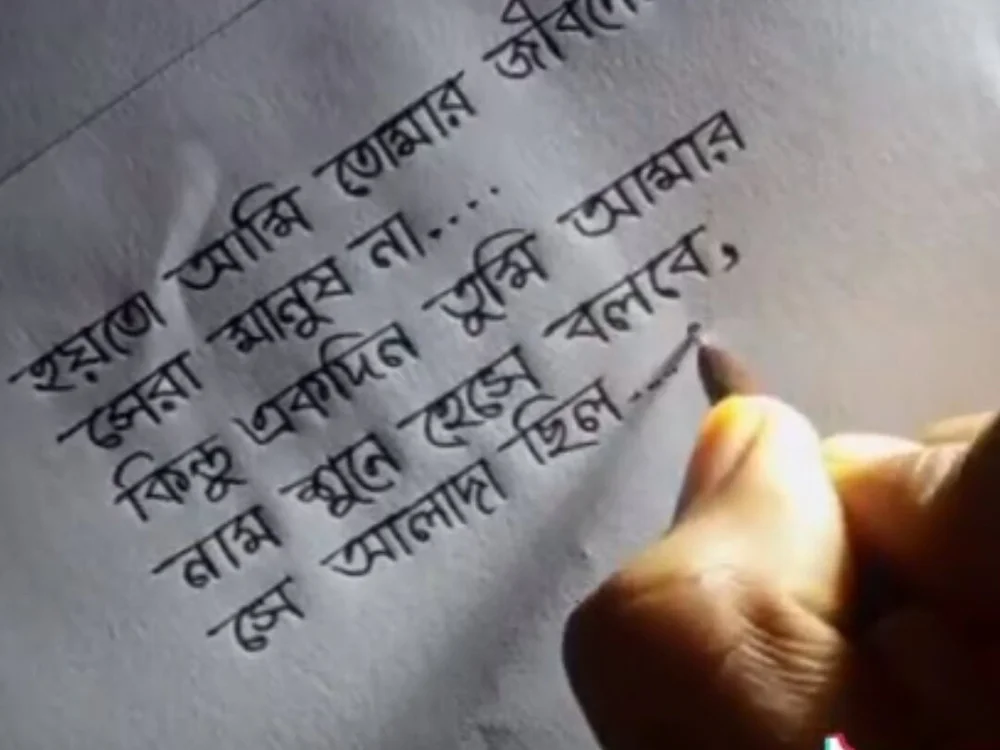 হয়তো আমি তোমার জীবনের
সেরা মানুষ না....
কিন্তু একদিন তুমি আমার
নাম শুনে হেসে বলবে,
সে আলাদা ছিল....